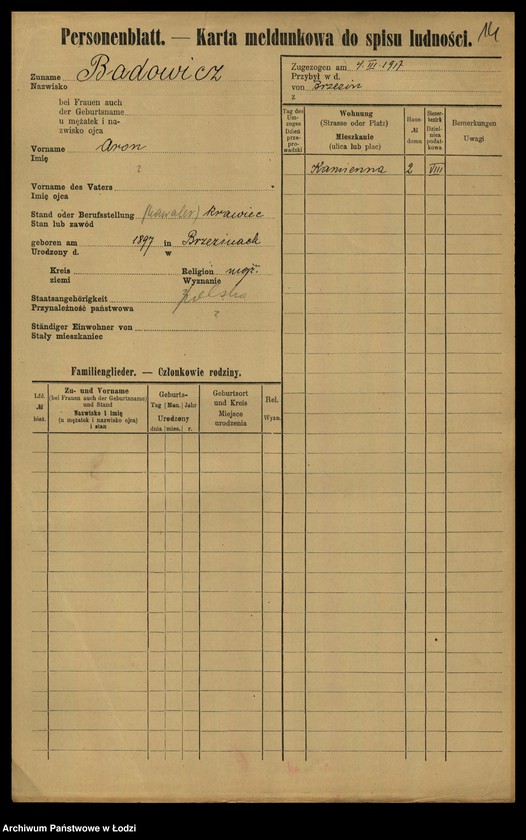 Personenblatt. — Karta meldunkowa do spisu ludności. 14
Zuname Badowicz
Nazwisko
bei Frauen auch
der Geburtsname
u mężatek i na-
zwisko ojca
Vorname Aron
Imię
?
Vorname des Vaters
Imię ojca
Stand oder Berufsstellung (kawaler) krawiec
Stan lub zawód
geboren am 1897 in Brzezinach
Urodzony d. w
Kreis Religion mojż.
ziemi Wyznanie
Staatsangehörigkeit polska
Przynależność państwowa ?
Ständiger Einwohner von
Stały mieszkaniec
Familienglieder. — Członkowie rodziny.
Lfd. № bież.
Zu- und Vorname
(bei Frauen auch der Geburtsname)
und Stand
Nazwisko i imię
(u mężatek i nazwisko ojca)
i stan
Geburts-
Tag Mon. Jahr
Urodzony
dnia mies. r.
Geburtsort
und Kreis
Miejsce
urodzenia
Rel.
Wyzn.
Zugezogen am 4.III.1917
Przybył w d.
von Brzezin
z
Tag des
Um-
zuges
Dzień
prze-
prowadzki
Wohnung
(Strasse oder Platz)
Mieszkanie
(ulica lub plac)
Haus-
№
domu
Steuer-
bezirk
Dziel-
nica
podat-
kowa
Bemerkungen
Uwagi
Kamienna 2 VIII
Archiwum Państwowe w Łodzi